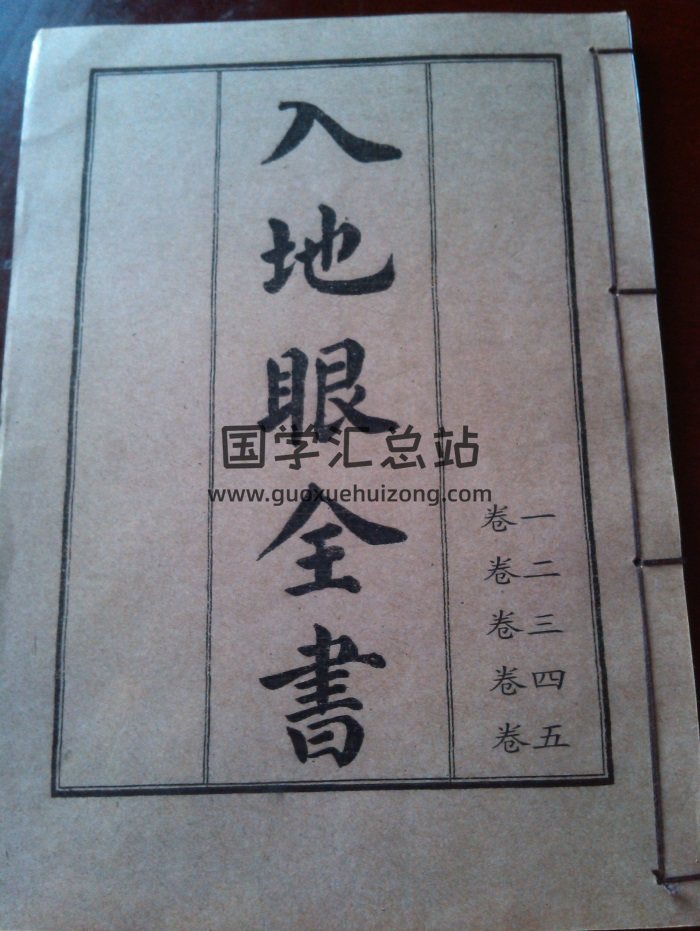 入地眼全書
国学汇总站
www.guoxuehuizong.com
卷一
卷二
卷三
卷四
卷五